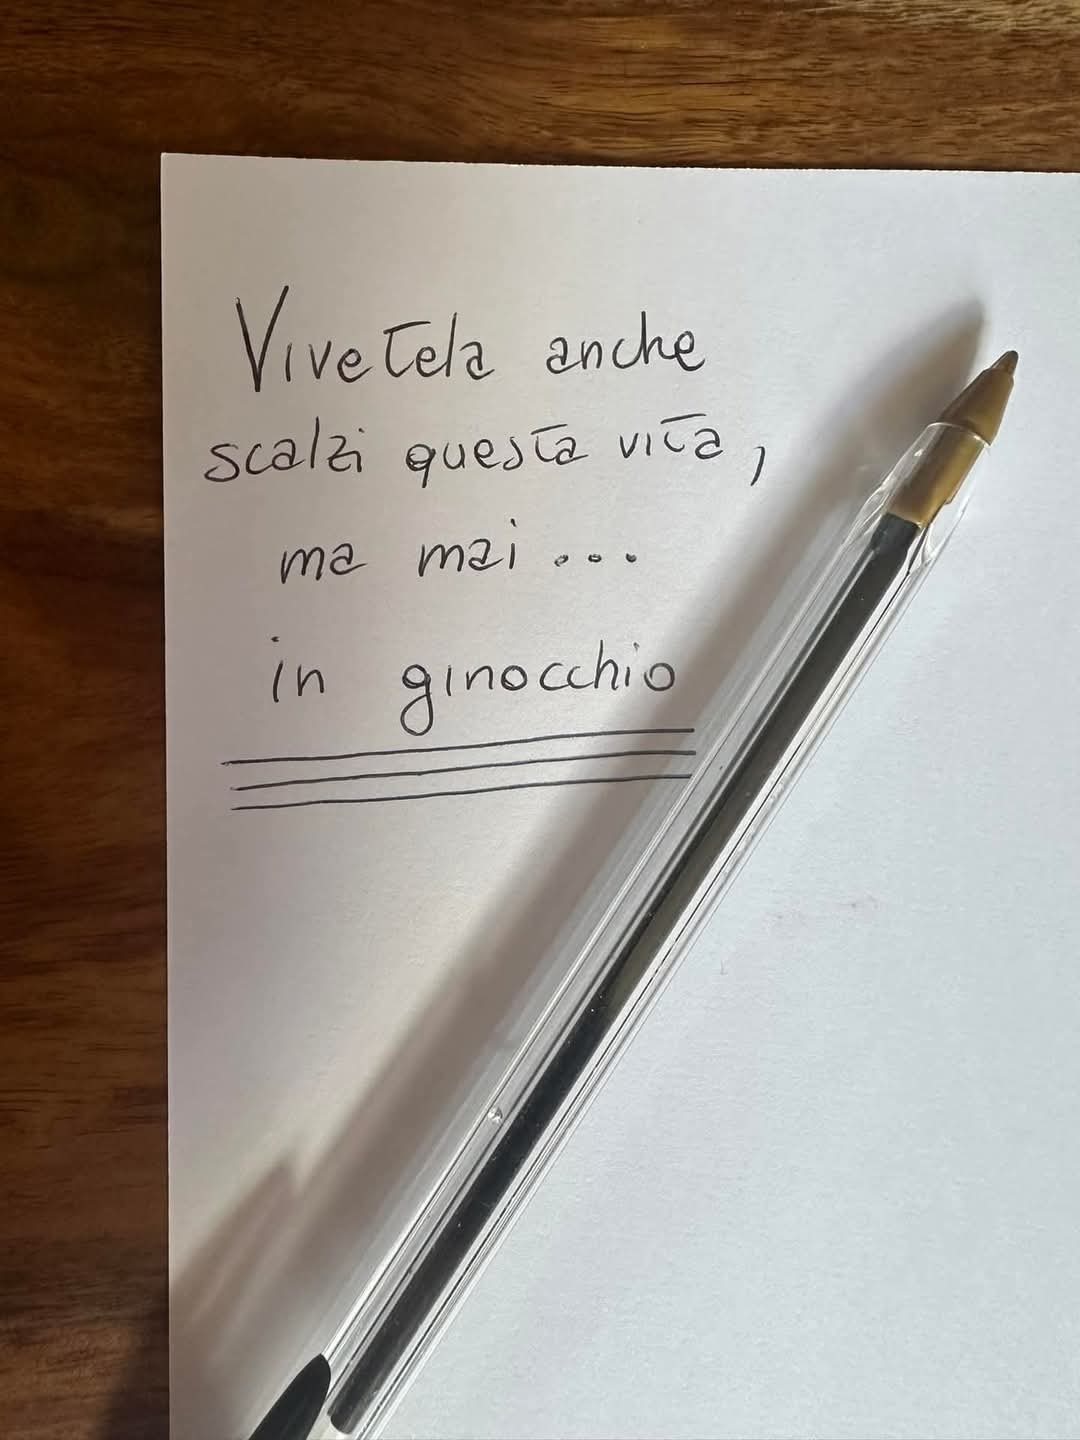 Vivetela anche
scalzi questa vita,
ma mai...
in ginocchio